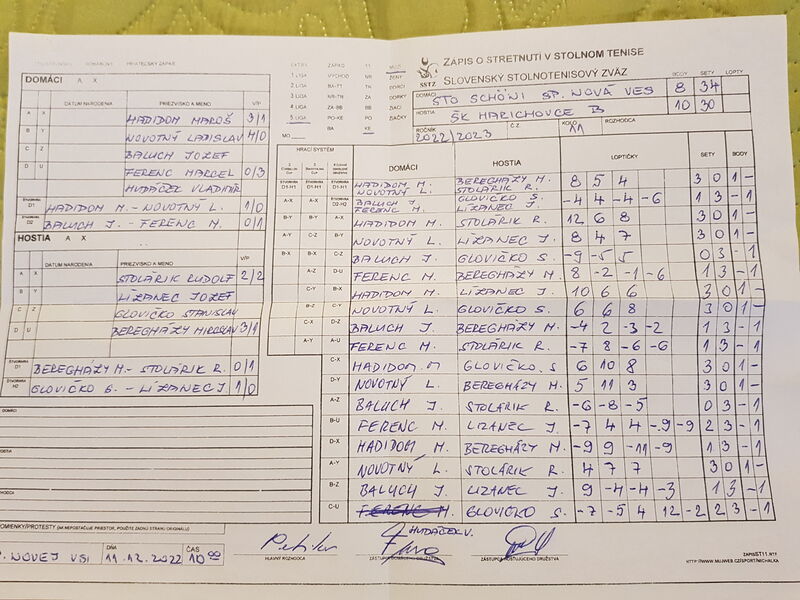 ZÁPIS O STRETNUTÍ V STOLNOM TENISE
SLOVENSKÝ STOLNOTENISOVÝ ZVÄZ
SSTZ
BODY SETY LOPTY
DOMÁCI STO SCHÖNI SP. NOVÁ VES 8 34
HOSTIA ŠK HARICHOVCE B 10 30
ROČNÍK 2022/2023 Č.Z. KOLO 11 ROZHODCA
EXTRA ZÁPAD 11 MUŽI
1 LIGA VÝCHOD NR ŽENY
2 LIGA BA-TT TN DORCI
3 LIGA NR-TN ZA DORKY
4 LIGA ZA-BB BB ŽIACI
5 LIGA PO-KE PO ŽIAČKY
MO BA KE
DOMÁCI A X
DÁTUM NARODENIA PRIEZVISKO A MENO V/P
A X HADIDOM MAROŠ 3/1
B Y NOVOTNÝ LADISLAV 4/0
C Z BALUCH JOZEF
D U FERENC MARCEL 0/3
HUDÁČEK VLADIMÍR
ŠTVORHRA D1 HADIDOM M. - NOVOTNÝ L. 1/0
ŠTVORHRA D2 BALUCH J. - FERENC M. 0/1
HOSTIA A X
DÁTUM NARODENIA PRIEZVISKO A MENO V/P
A X STOLÁRIK RUDOLF 2/2
B Y LÍZANEC JOZEF
C Z GLOVIČKO STANISLAV
D U BEREGHÁZY MIROSLAV 3/1
ŠTVORHRA BEREGHÁZY M. - STOLÁRIK R. 0/1
ŠTVORHRA H2 GLOVIČKO S. - LÍZANEC J. 1/0
HRACÍ SYSTÉM DOMÁCI HOSTIA LOPTIČKY SETY BODY
D1-H1 D1-H1 D1-H1 HADIDOM M. NOVOTNÝ L. BEREGHÁZY M. STOLÁRIK R. 8 5 4 3 0 1 -
A-X A-X D2-H2 BALUCH J. FERENC M. GLOVIČKO S. LÍZANEC J. -4 4 -4 -6 1 3 - 1
B-Y B-Y A-X HADIDOM M. STOLÁRIK R. 12 6 8 3 0 1 -
A-Y C-Z B-Y NOVOTNÝ L. LÍZANEC J. 8 4 7 3 0 1 -
B-X B-X C-Z BALUCH J. GLOVIČKO S. -9 -5 5 0 3 - 1
A-Z D-U FERENC M. BEREGHÁZY M. 8 -2 -1 -6 1 3 - 1
C-Y B-Y HADIDOM M. LÍZANEC J. 10 6 6 3 0 1 -
NOVOTNÝ L. GLOVIČKO S. 6 6 8 3 0 1 -
BALUCH J. BEREGHÁZY M. -4 2 -3 -2 1 3 - 1
FERENC M. STOLÁRIK R. -7 8 -6 -6 1 3 - 1
C-X HADIDOM M GLOVIČKO S 6 10 8 3 0 1 -
D-Y NOVOTNÝ L. BEREGHÁZY M. 5 11 3 3 0 1 -
A-Z BALUCH J. STOLÁRIK R. -6 -8 -5 0 3 - 1
B-U FERENC M. LÍZANEC J. -7 4 4 -9 -9 2 3 - 1
D-X HADIDOM M. BEREGHÁZY M -9 9 -11 -9 1 3 - 1
A-Y NOVOTNÝ L. STOLÁRIK R. 4 7 7 3 0 1 -
B-Z BALUCH J. LÍZANEC J. 9 -4 -4 -3 1 3 - 1
C-U FERENC M. GLOVIČKO S. -7 -5 4 12 -2 2 3 - 1
HUDÁČEK V.
DOMÁCI
HOSTIA
ROZHODCA
POMIENKY/PROTESTY (AK NEPOSTAČUJE PRIESTOR, POUŽITE ZADNÚ STRANU ORIGINÁLU)
NOVEJ VSI DŇA 11.12.2022 ČAS 10 00
HLAVNÝ ROZHODCA
ZÁSTUPCA DOMÁCEHO DRUŽSTVA
ZÁSTUPCA HOSŤUJÚCEHO DRUŽSTVA
ZAPISST11.RTF
HTTP://WWW.MUJWEB.CZ/SPORT/NICHALKA